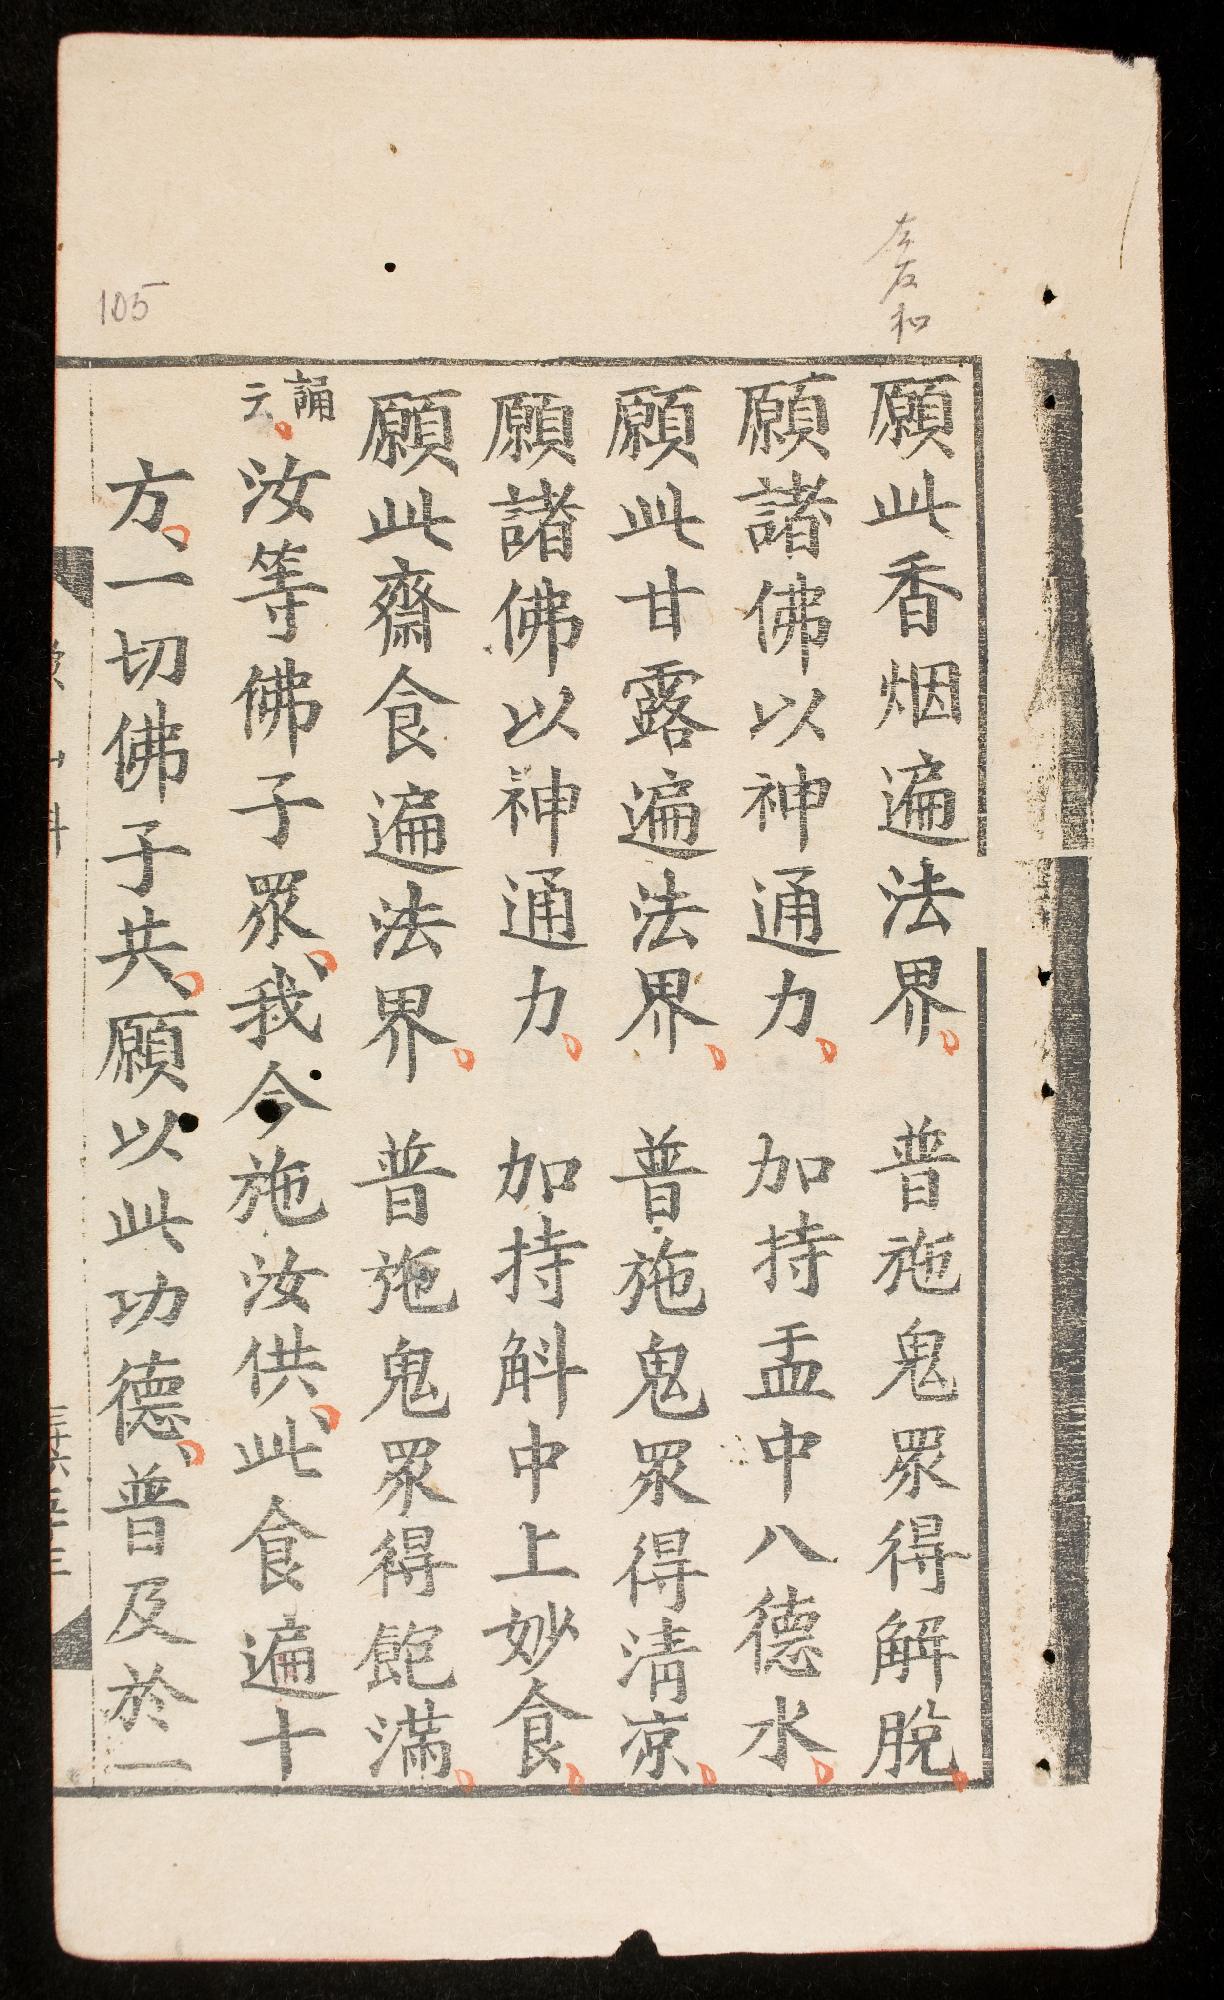 願此香烟遍法界 普施鬼眾得解脫
願諸佛以神通力 加持盂中八德水
願此甘露遍法界 普施鬼眾得清凉
願諸佛以神通力 加持斛中上妙食
願此齋食遍法界 普施鬼眾得飽滿
誦云 汝等佛子眾、我今施汝供、此食遍十
方、一切佛子共、願以此功德、普及於一
105